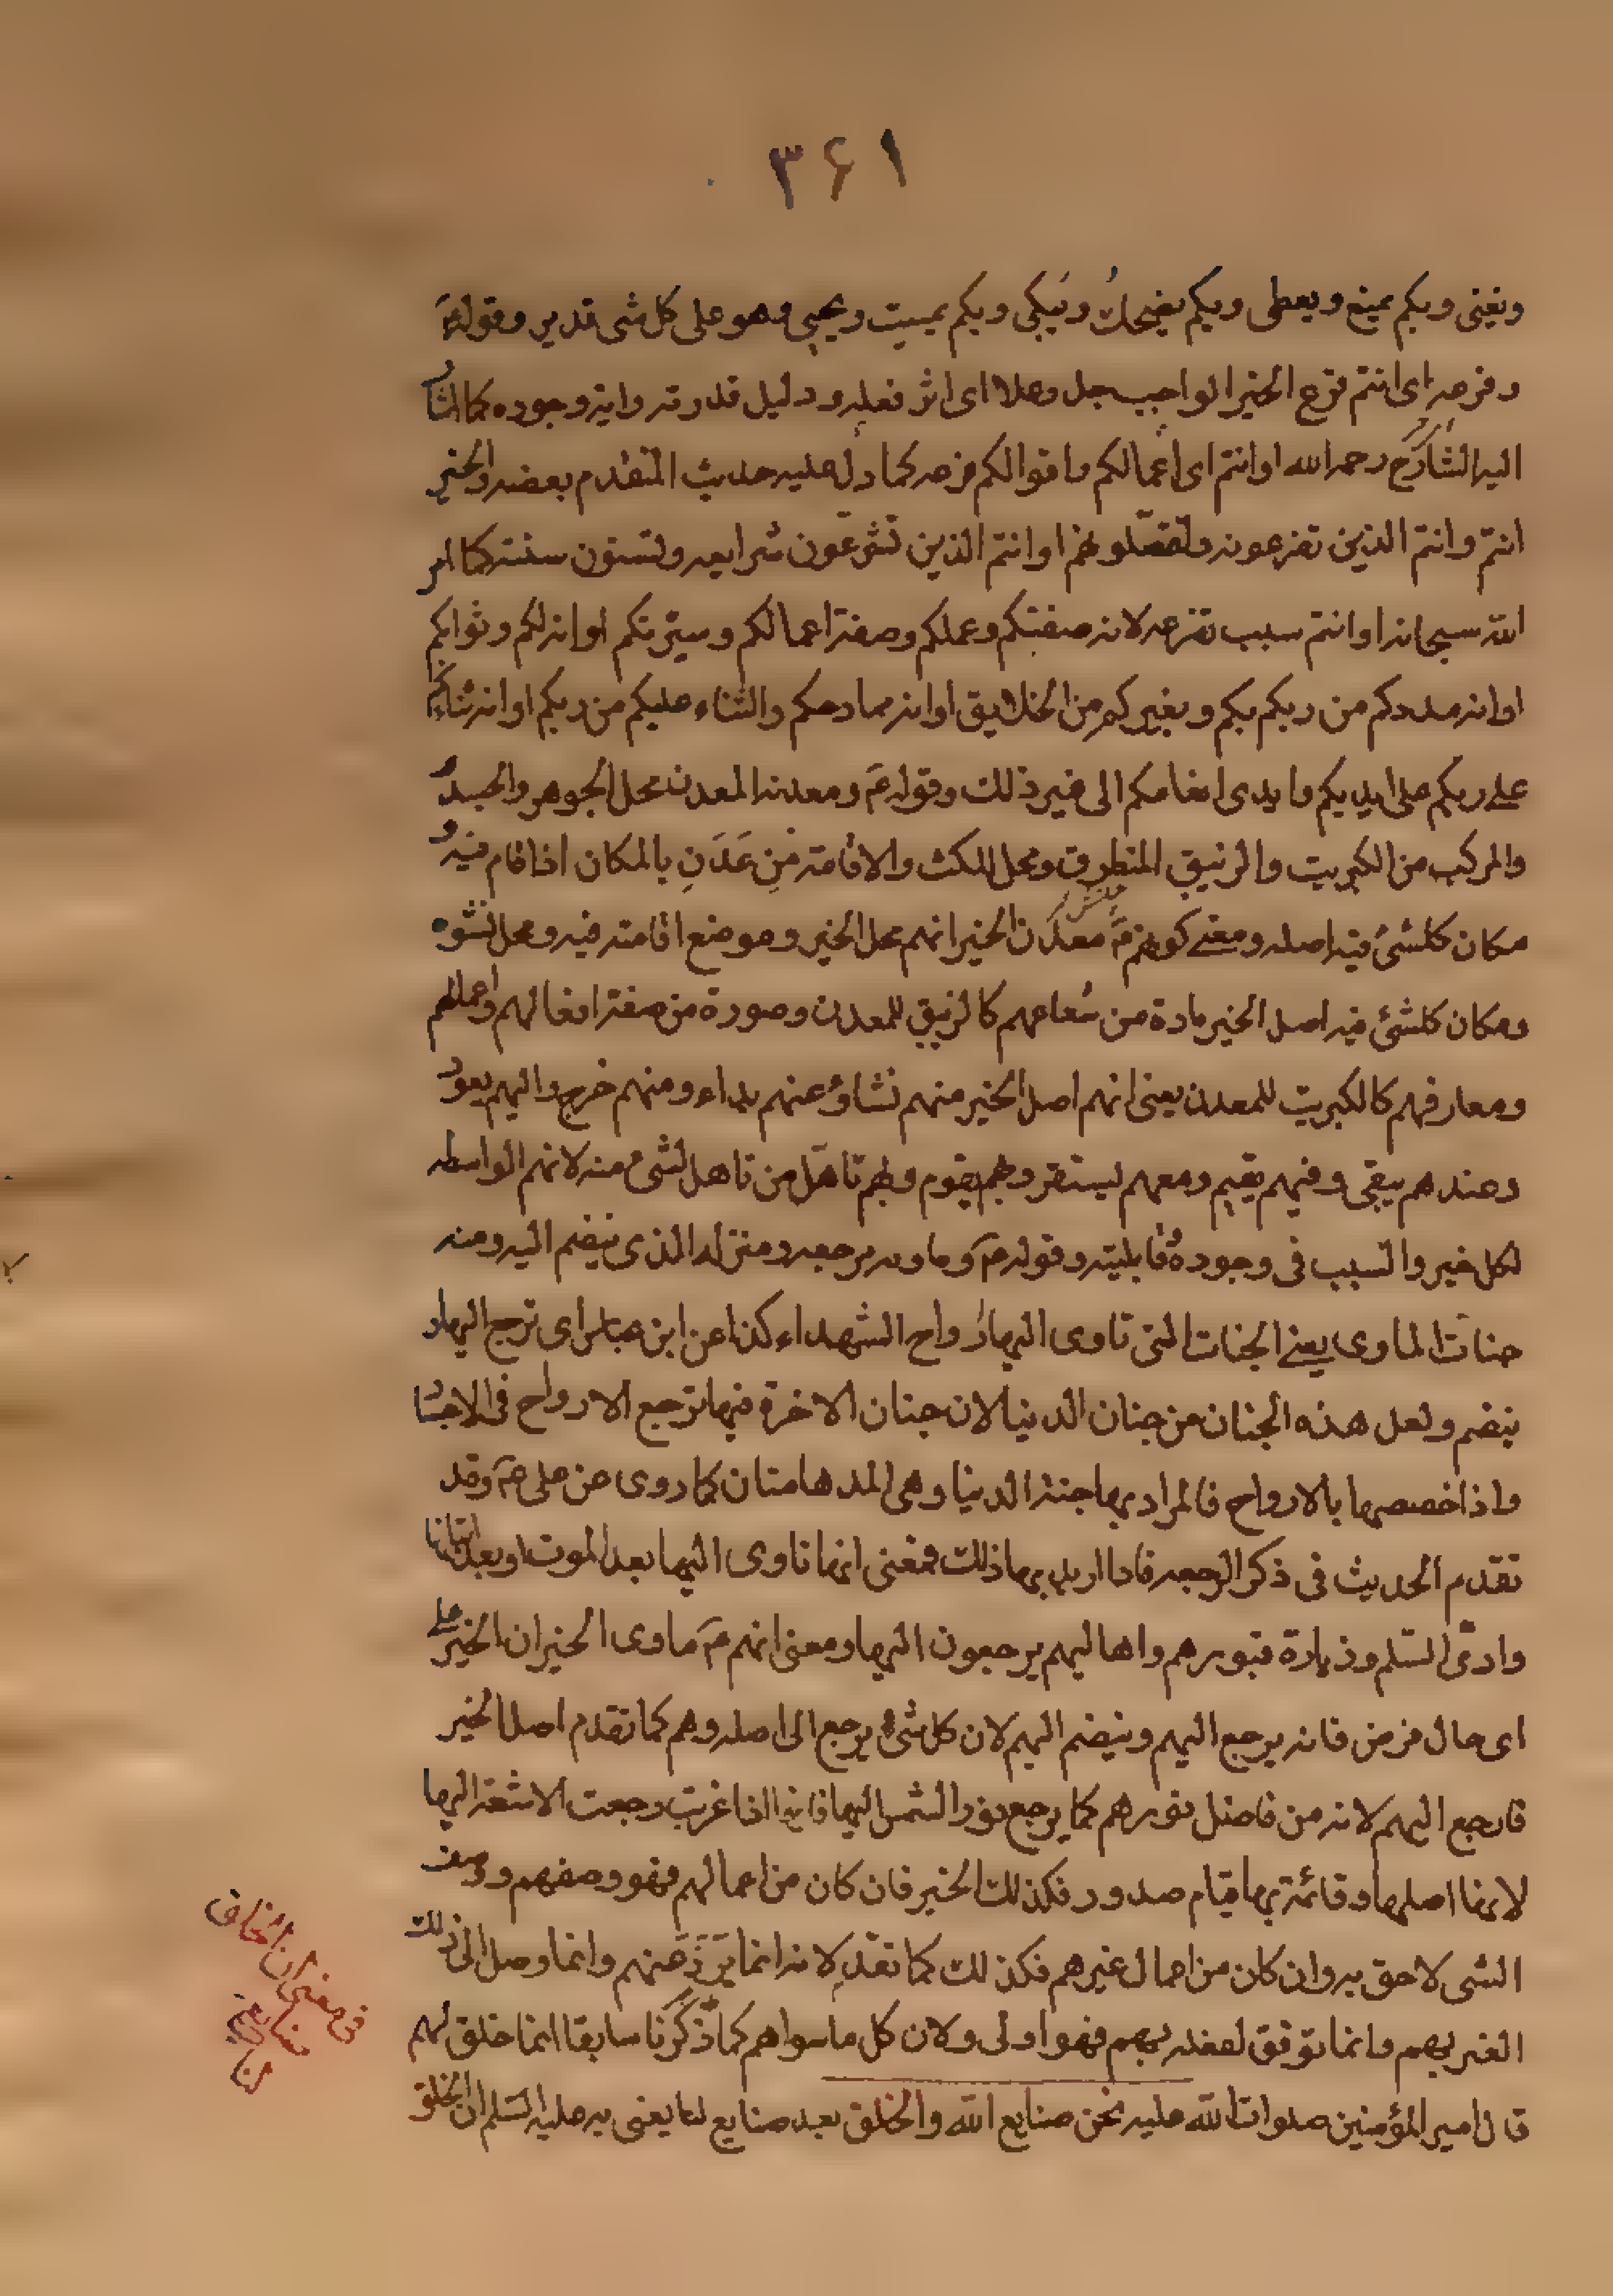 ۳۶۱
ويغنى وبكم يمنع ويعطى وبكم يضحك ويبكى وبكم يميت ويحيى وهو على كل شئ قدير وقوله ع
وفرعه اى انتم فرع الخير الواجب جل وعلا اى اثر فعله ودليل قدرته واية وجوده كما اشار
اليه الشارح رحمه الله او انتم اى اعمالكم واقوالكم فرعه كما دل عليه حديث المتقدم بعضه والخير
انتم وانتم الذين تفرعونه وتفصّلونه او انتم الذين تشرّعون شرايعه وتسنون سننه كما امر
الله سبحانه او انتم سبب تفرعه لانه صفتكم وعملكم وصفة اعمالكم وسيرتكم او انه لكم وثوابكم
او انه مددكم من ربكم بكم وبغيركم من الخلايق او انه ممادحكم والثناء عليكم من ربكم او انه ثناءكم
على ربكم على ايديكم وايدى انعامكم الى غير ذلك وقوله ع ومعدنه المعدن محل الجوهر والجسد
والمركب من الكبريت والزيبق المنطرق ومحل المكث والاقامة من عَدَنَ بالمكان اذا قام فيه و
مكان كلشئ فيه اصله ومعنى كونهم ع معدن الخير انهم محل الخير وموضع اقامته فيه ومحل نشوه
ومكان كلشئ فيه اصل الخير مادة من شعاعهم كالزيبق للمعدن وصورة من صفة افعالهم واعمالهم
ومعارفهم كالكبريت للمعدن يعنى انهم اصل الخير منهم نشاؤ عنهم بداء ومنهم خرج واليهم يعود
وعندهم يبقى وفيهم يقيم ومعهم يستقر وبهم يقوم ولهم تاهل من تاهل لشئ منه لانهم الواسطه
لكل خير والسبب فى وجوده وقابليته وقوله ع وماويه مرجعه ومنزله الذى ينضم اليه ومنه
جنات الماوى يعنى الجنات التى تاوى اليها ارواح الشهداء كذا عن ابن عباس اى ترجع اليها و
ينضم ولعل هذه الجنان من جنان الدنيا لان جنان الاخرة فيها ترجع الارواح فى الاجساد
واذا خصصها بالارواح فالمراد بها جنة الدنيا وهى المدهامتان كما روى عن على ع وقد
تقدم الحديث فى ذكر الرجعه فاذا اريد بها ذلك فمعنى انها تاوى اليها بعد الموت او بعد اتيانها
وادى السلم وزيارة قبورهم واهاليهم يرجعون اليها ومعنى انهم ع ماوى الخير ان الخير على
اى حال فرض فانه يرجع اليهم وينضم اليهم لان كل شئ يرجع الى اصله وهم كما تقدم اصل الخير
فارجع اليهم لانه من فاضل نورهم كما يرجع نور الشمس اليها فانها اذا غربت رجعت الاشعة اليها
لانها اصلها وقائمة بها قيام صدور فكذلك الخير فان كان من اعمالهم فهو وصفهم ووصف
الشى لاحق به وان كان من اعمال غيرهم فكذلك كما تقدم لانه انما برز عنهم وانما وصل الى ذلك
الغير بهم وانما توفق لفعله بهم فهو اولى ولان كل ما سواهم كما ذكرنا سابقا انما خلق لهم
قال امير المؤمنين صلوات الله عليه نحن صنايع الله والخلق بعد صنايع لنا يعنى به عليه السلم ان الخلق
فى معنى ان الخلق
صنايع
لنا